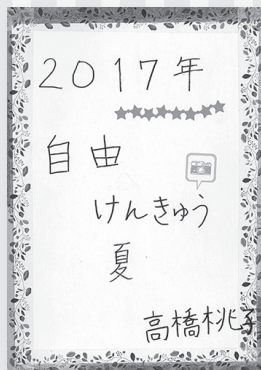 2017年
自由
けんきゅう
夏
高橋桃子